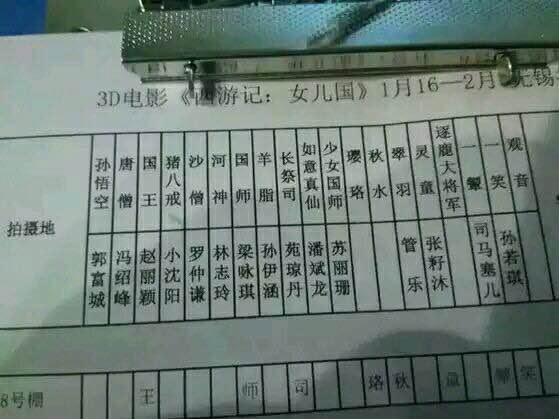 3D电影《西游记：女儿国》1月16—2月 无锡
拍摄地
孙悟空 唐僧 国王 猪八戒 沙僧 河神 国师 羊脂 长祭司 如意真仙 少女国师 璎珞 秋水 翠羽 灵童 逐鹿大将军 一颦 一笑 观音
郭富城 冯绍峰 赵丽颖 小沈阳 罗仲谦 林志玲 梁咏琪 孙伊涵 苑琼丹 潘斌龙 苏丽珊 管乐 张籽沐 司马塞儿 孙若琪
8号棚 王 师 司 珞 秋 童 颦 笑